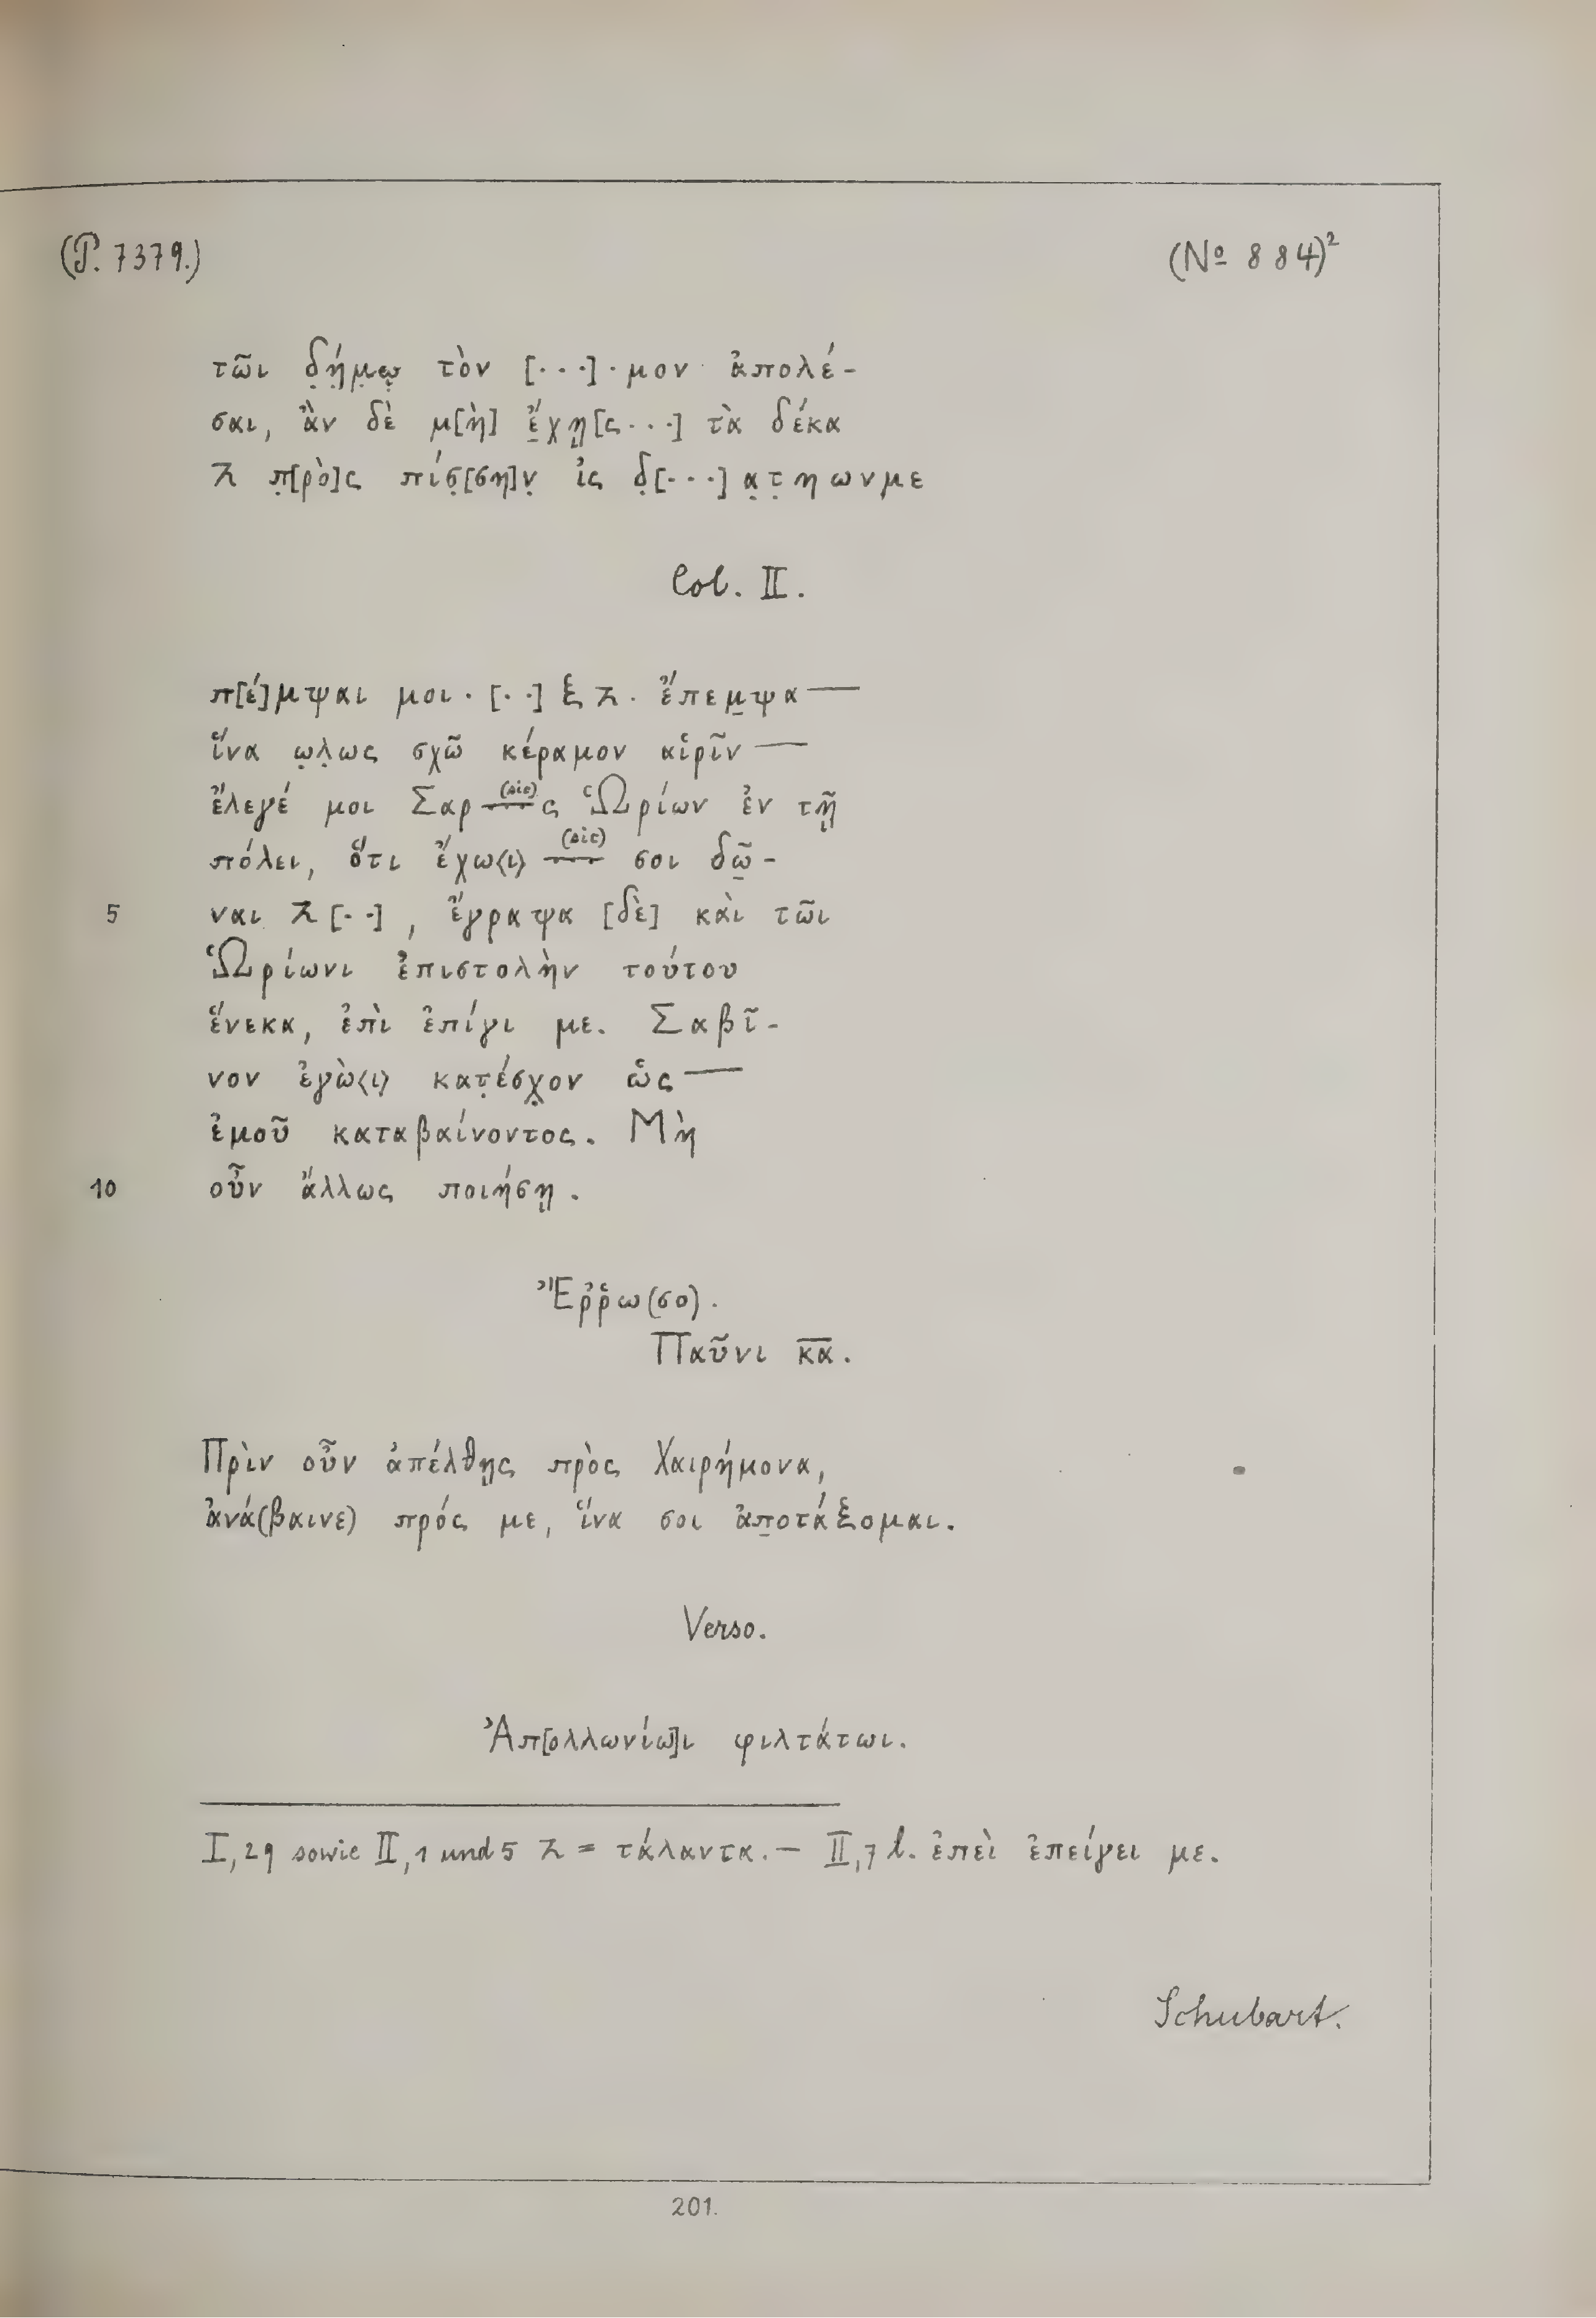 (P. 7379.) (Nº 884)²
τῶι δ̣ή̣μ̣ῳ̣ τὸν [· · ·] · μον ἀπολέ-
σαι, ἂν δὲ μ[ὴ] ἔ̣χῃ[ς · · ·] τὰ δέκα
⊼ π̣[ρὸ]ς πίσ̣[ση]ν̣ ἰς δ̣[· · ·] α̣τ̣ηωνμε
Col. II.
π[έ]μψαι μοι · [· ·] ξ ⊼. ἔπεμ̣ψα —
ἵνα ω̣λ̣ως σχῶ κέραμον αἱρῖν —
ἔλεγέ μοι Σαρ —(sic) ς Ὡρίων ἐν τῇ
πόλει, ὅτι ἔχω⟨ι⟩ —(sic) σοι δῶ̣-
5 ναι ⊼ [· ·], ἔγραψα [δὲ] καὶ τῶι
Ὡρίωνι ἐπιστολὴν τούτου
ἕνεκα, ἐπὶ ἐπίγι με. Σαβῖ-
νον ἐγὼ⟨ι⟩ κατ̣έσχ̣ον ὡς —
ἐμοῦ καταβαίνοντος. Μὴ
10 οὖν ἄλλως ποιήσῃ.
Ἔῤῥω(σο).
Παῦνι κ̅α̅.
Πρὶν οὖν ἀπέλθῃς πρὸς Χαιρήμονα,
ἀνά(βαινε) πρός με, ἵνα σοι ἀπ̣οτάξομαι.
Verso.
Ἀπ[ολλωνίω]ι φιλτάτωι.
I, 29 sowie II, 1 und 5 ⊼ = τάλαντα. — II, 7 l. ἐπεὶ ἐπείγει με.
Schubart.
201.